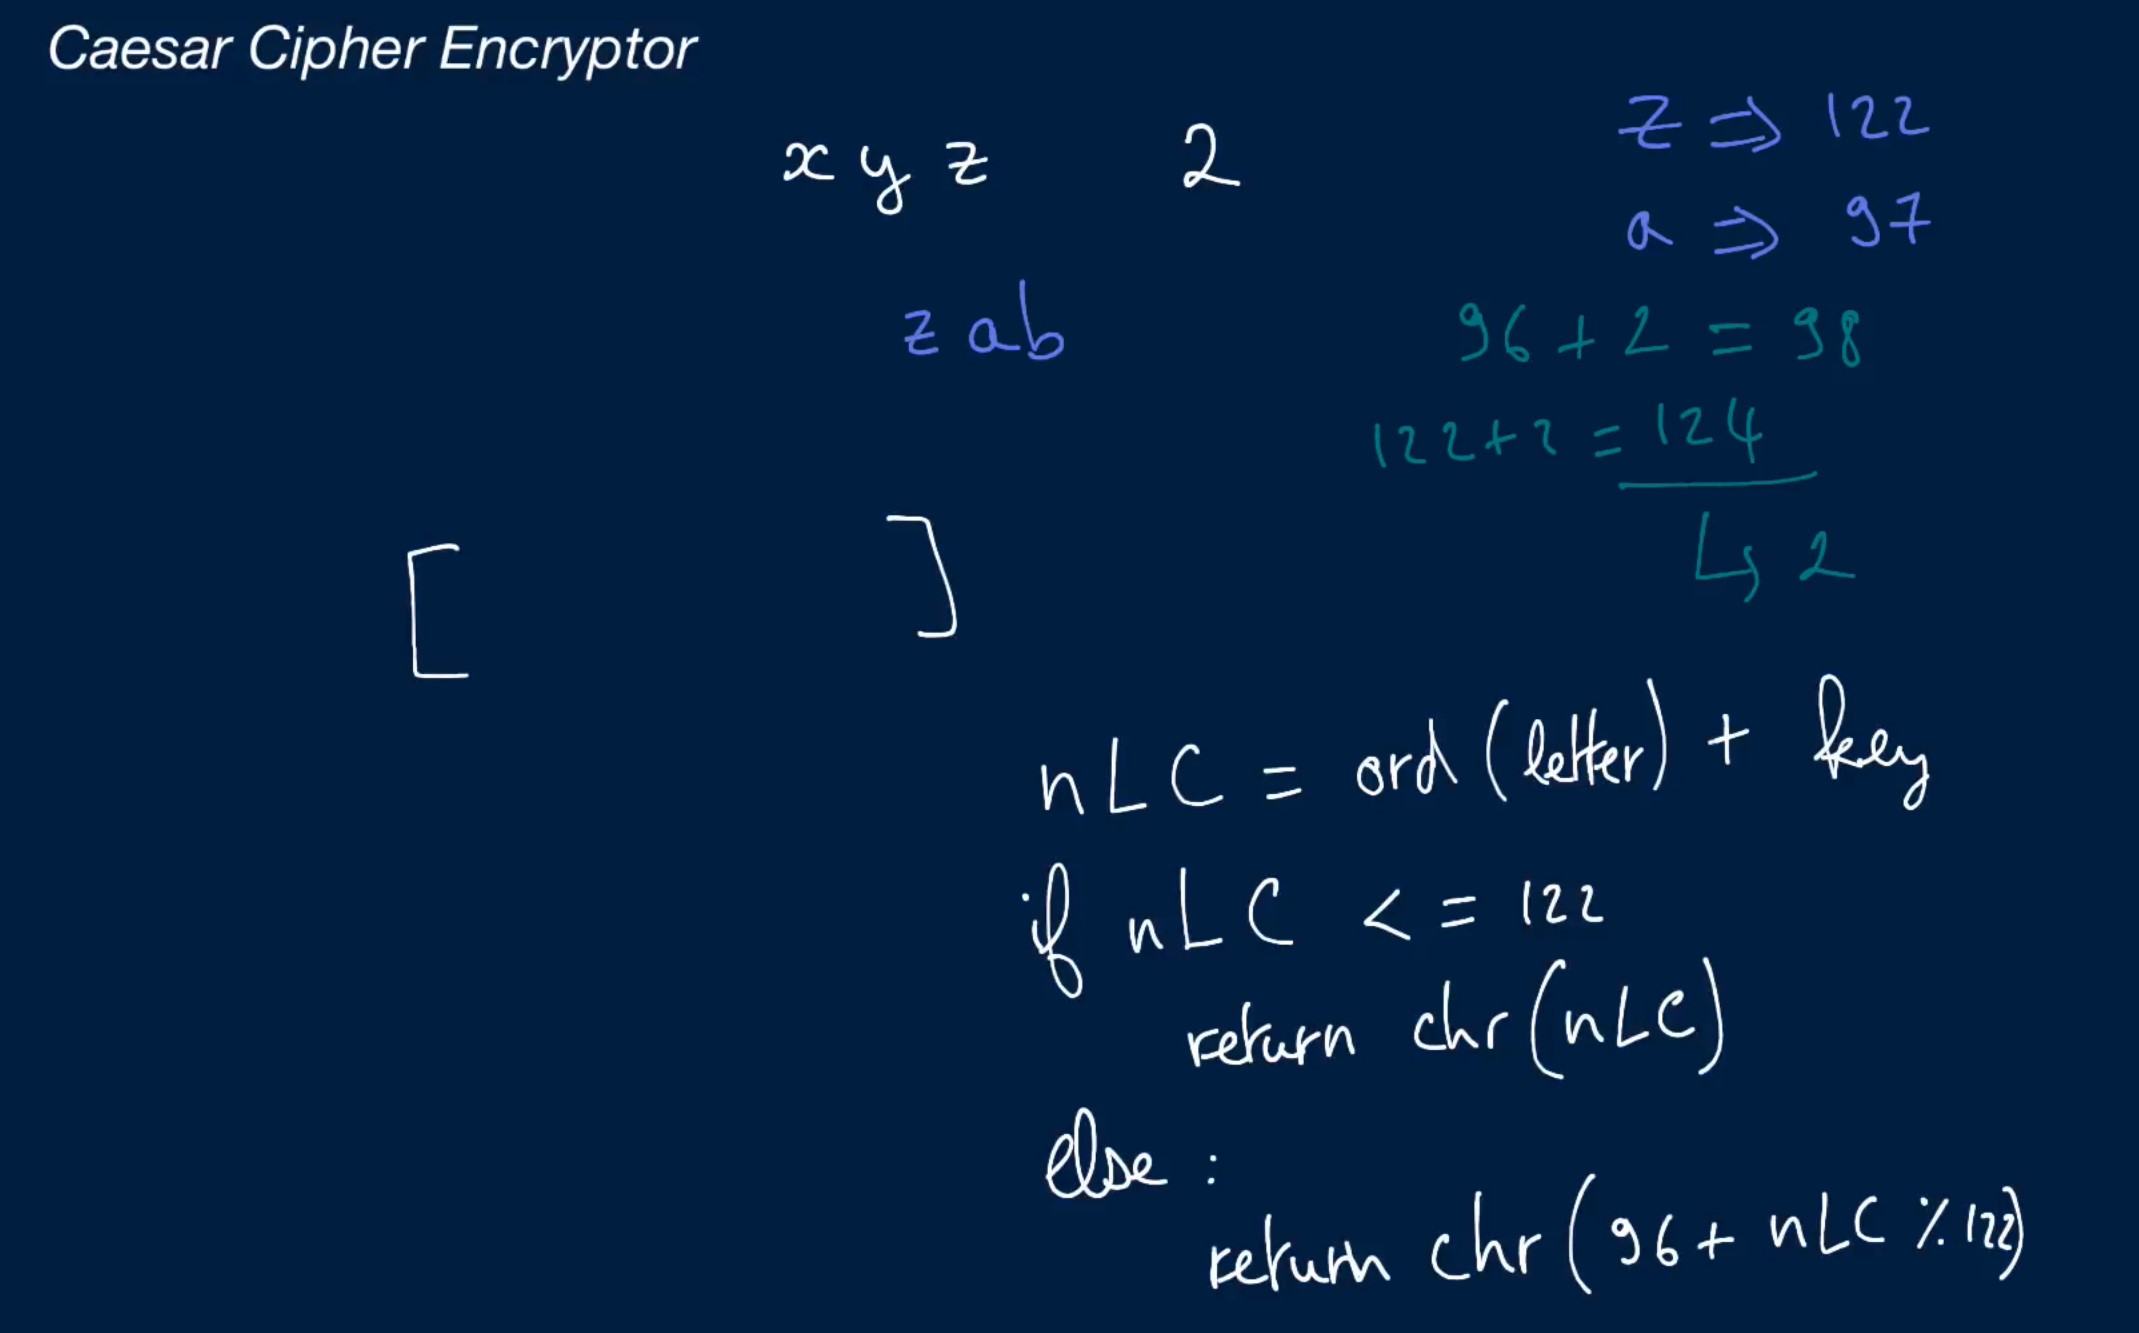 Caesar Cipher Encryptor
x y z 2
z ab
z ⇒ 122
a ⇒ 97
96 + 2 = 98
122 + 2 = 124
↳ 2
[ ]
nLC = ord (letter) + key
if nLC <= 122
return chr (nLC)
else :
return chr (96 + nLC % 122)